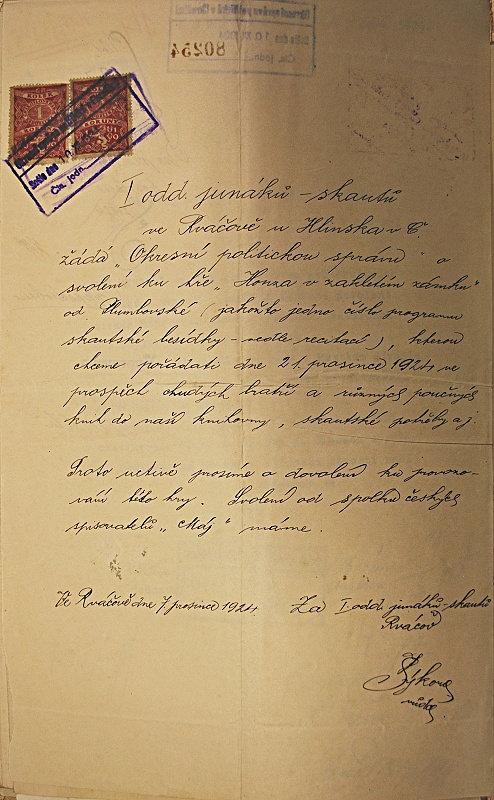 80254
Došlo dne
Čís. jedn.
KOLEK
1
I odd. junáků - skautů
ve Rváčově u Hlinska v Č.
žádá „Okresní politickou správu" o
svolení ku hře „Honza v zakletém zámku"
od (jakožto jedno číslo programu
skautské besídky - vedle recitací), kterou
chceme pořádati dne 21. prosince 1924 ve
prospěch chudých bratří a různých poučných
knih do naší knihovny, skautské potřeby a j.
Proto uctivě prosíme o dovolení ku provozo-
vání této hry. Svolení od spolku českých
spisovatelů „Máj" máme.
Ve Rváčově dne 7 prosince 1924.
Za I odd. junáků-skautů
Rváčov